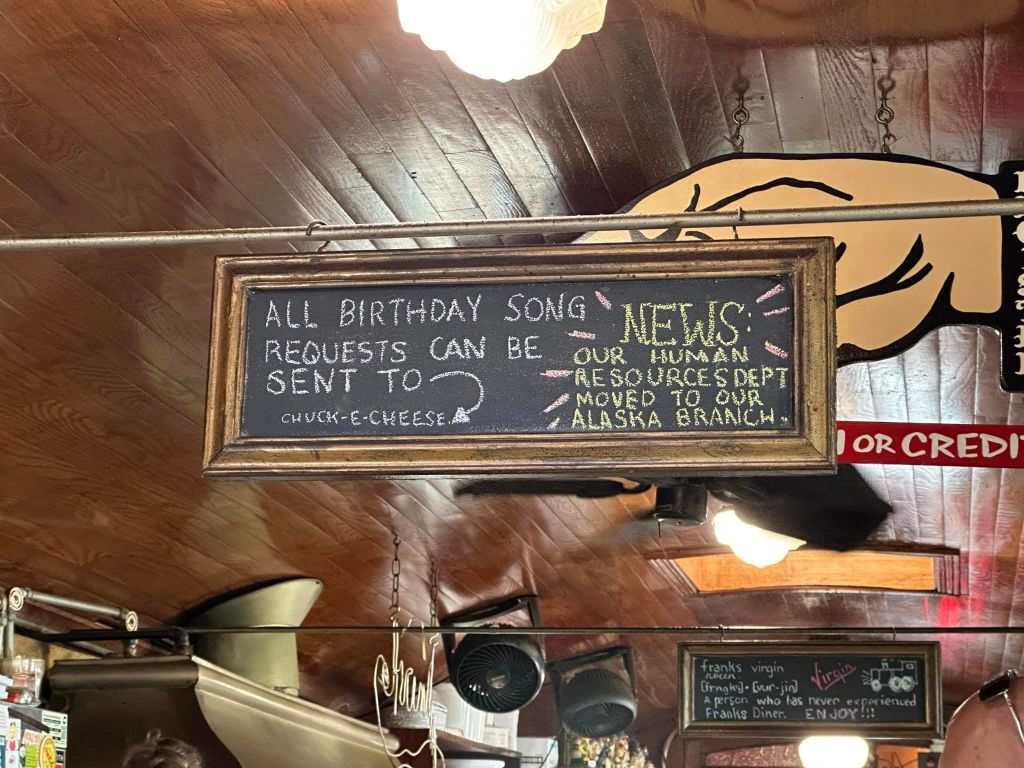 ALL BIRTHDAY SONG
REQUESTS CAN BE
SENT TO
CHUCK-E-CHEESE
NEWS:
OUR HUMAN
RESOURCES DEPT
MOVED TO OUR
ALASKA BRANCH.
OR CREDIT
franks virgin
noun
Virgin
[frngks] • [vur-jin]
A person who has never experienced
Franks Diner. ENJOY!!!